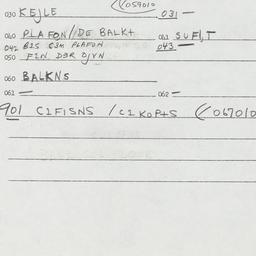 (/059010
030 KEJLE 031 —
040 PLAFON//DE BALK+ 041 SUFI,T
042 B2S C3M PLAFON 043 —
050 F2N D3R DJVN
060 BALKNS
061 — 062 —
901 C2FISNS /C2KOP+S (/067010